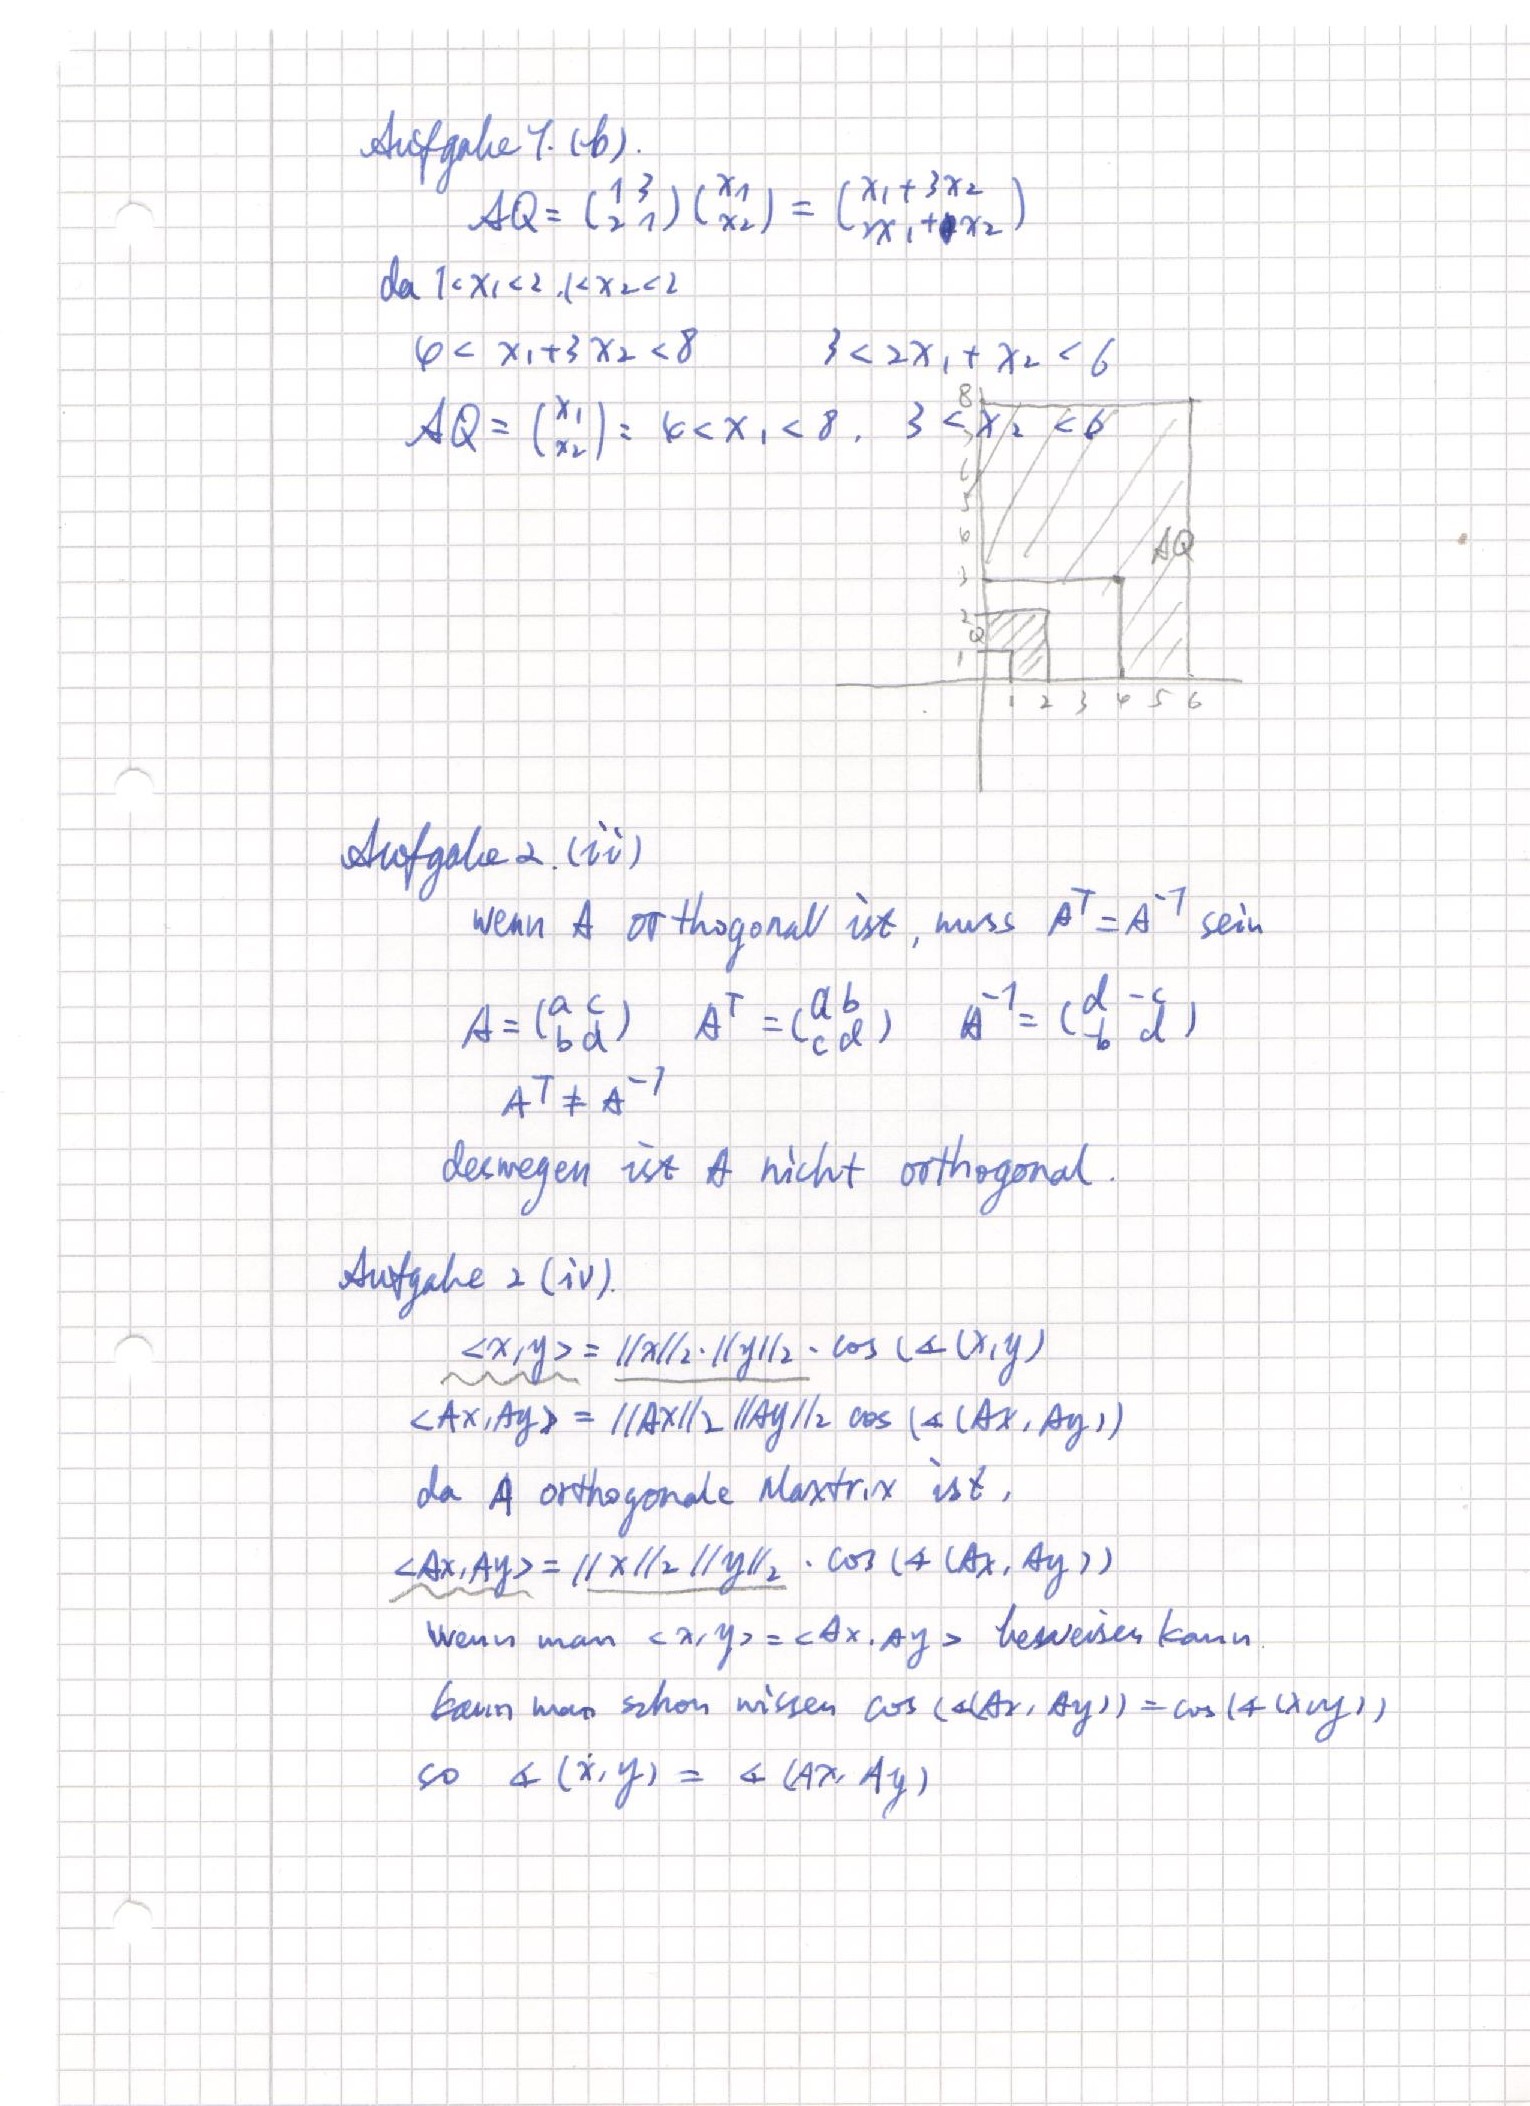 Aufgabe 1. (b).
AQ = (1 3 / 2 1) (x1 / x2) = (x1 + 3x2 / 2x1 + x2)
da 1<x1<2 . 1<x2<2
4 < x1+3x2 <8    3 < 2x1 + x2 < 6
AQ = (x1 / x2) : 4 < x1 < 8 . 3 < x2 < 6
8
7
6
5
4
3
2
1
Q
AQ
1 2 3 4 5 6
Aufgabe 2. (ii)
wenn A orthogonal ist, muss A^T = A^-1 sein
A = (a c / b d)  A^T = (a b / c d)  A^-1 = (d -c / -b d)
A^T ≠ A^-1
deswegen ist A nicht orthogonal.
Aufgabe 2 (iv).
<x,y> = ||x||2 · ||y||2 · cos (∡(x,y)
<Ax,Ay> = ||Ax||2 ||Ay||2 cos (∡(Ax, Ay))
da A orthogonale Maxtrix ist,
<Ax,Ay> = ||x||2 ||y||2 · cos (∡ (Ax, Ay))
Wenn man <x,y> = <Ax, Ay> besweisen kann.
kann man schon wissen cos (∡(Ax, Ay)) = cos (∡ (x,y))
so ∡ (x,y) = ∡ (Ax, Ay)